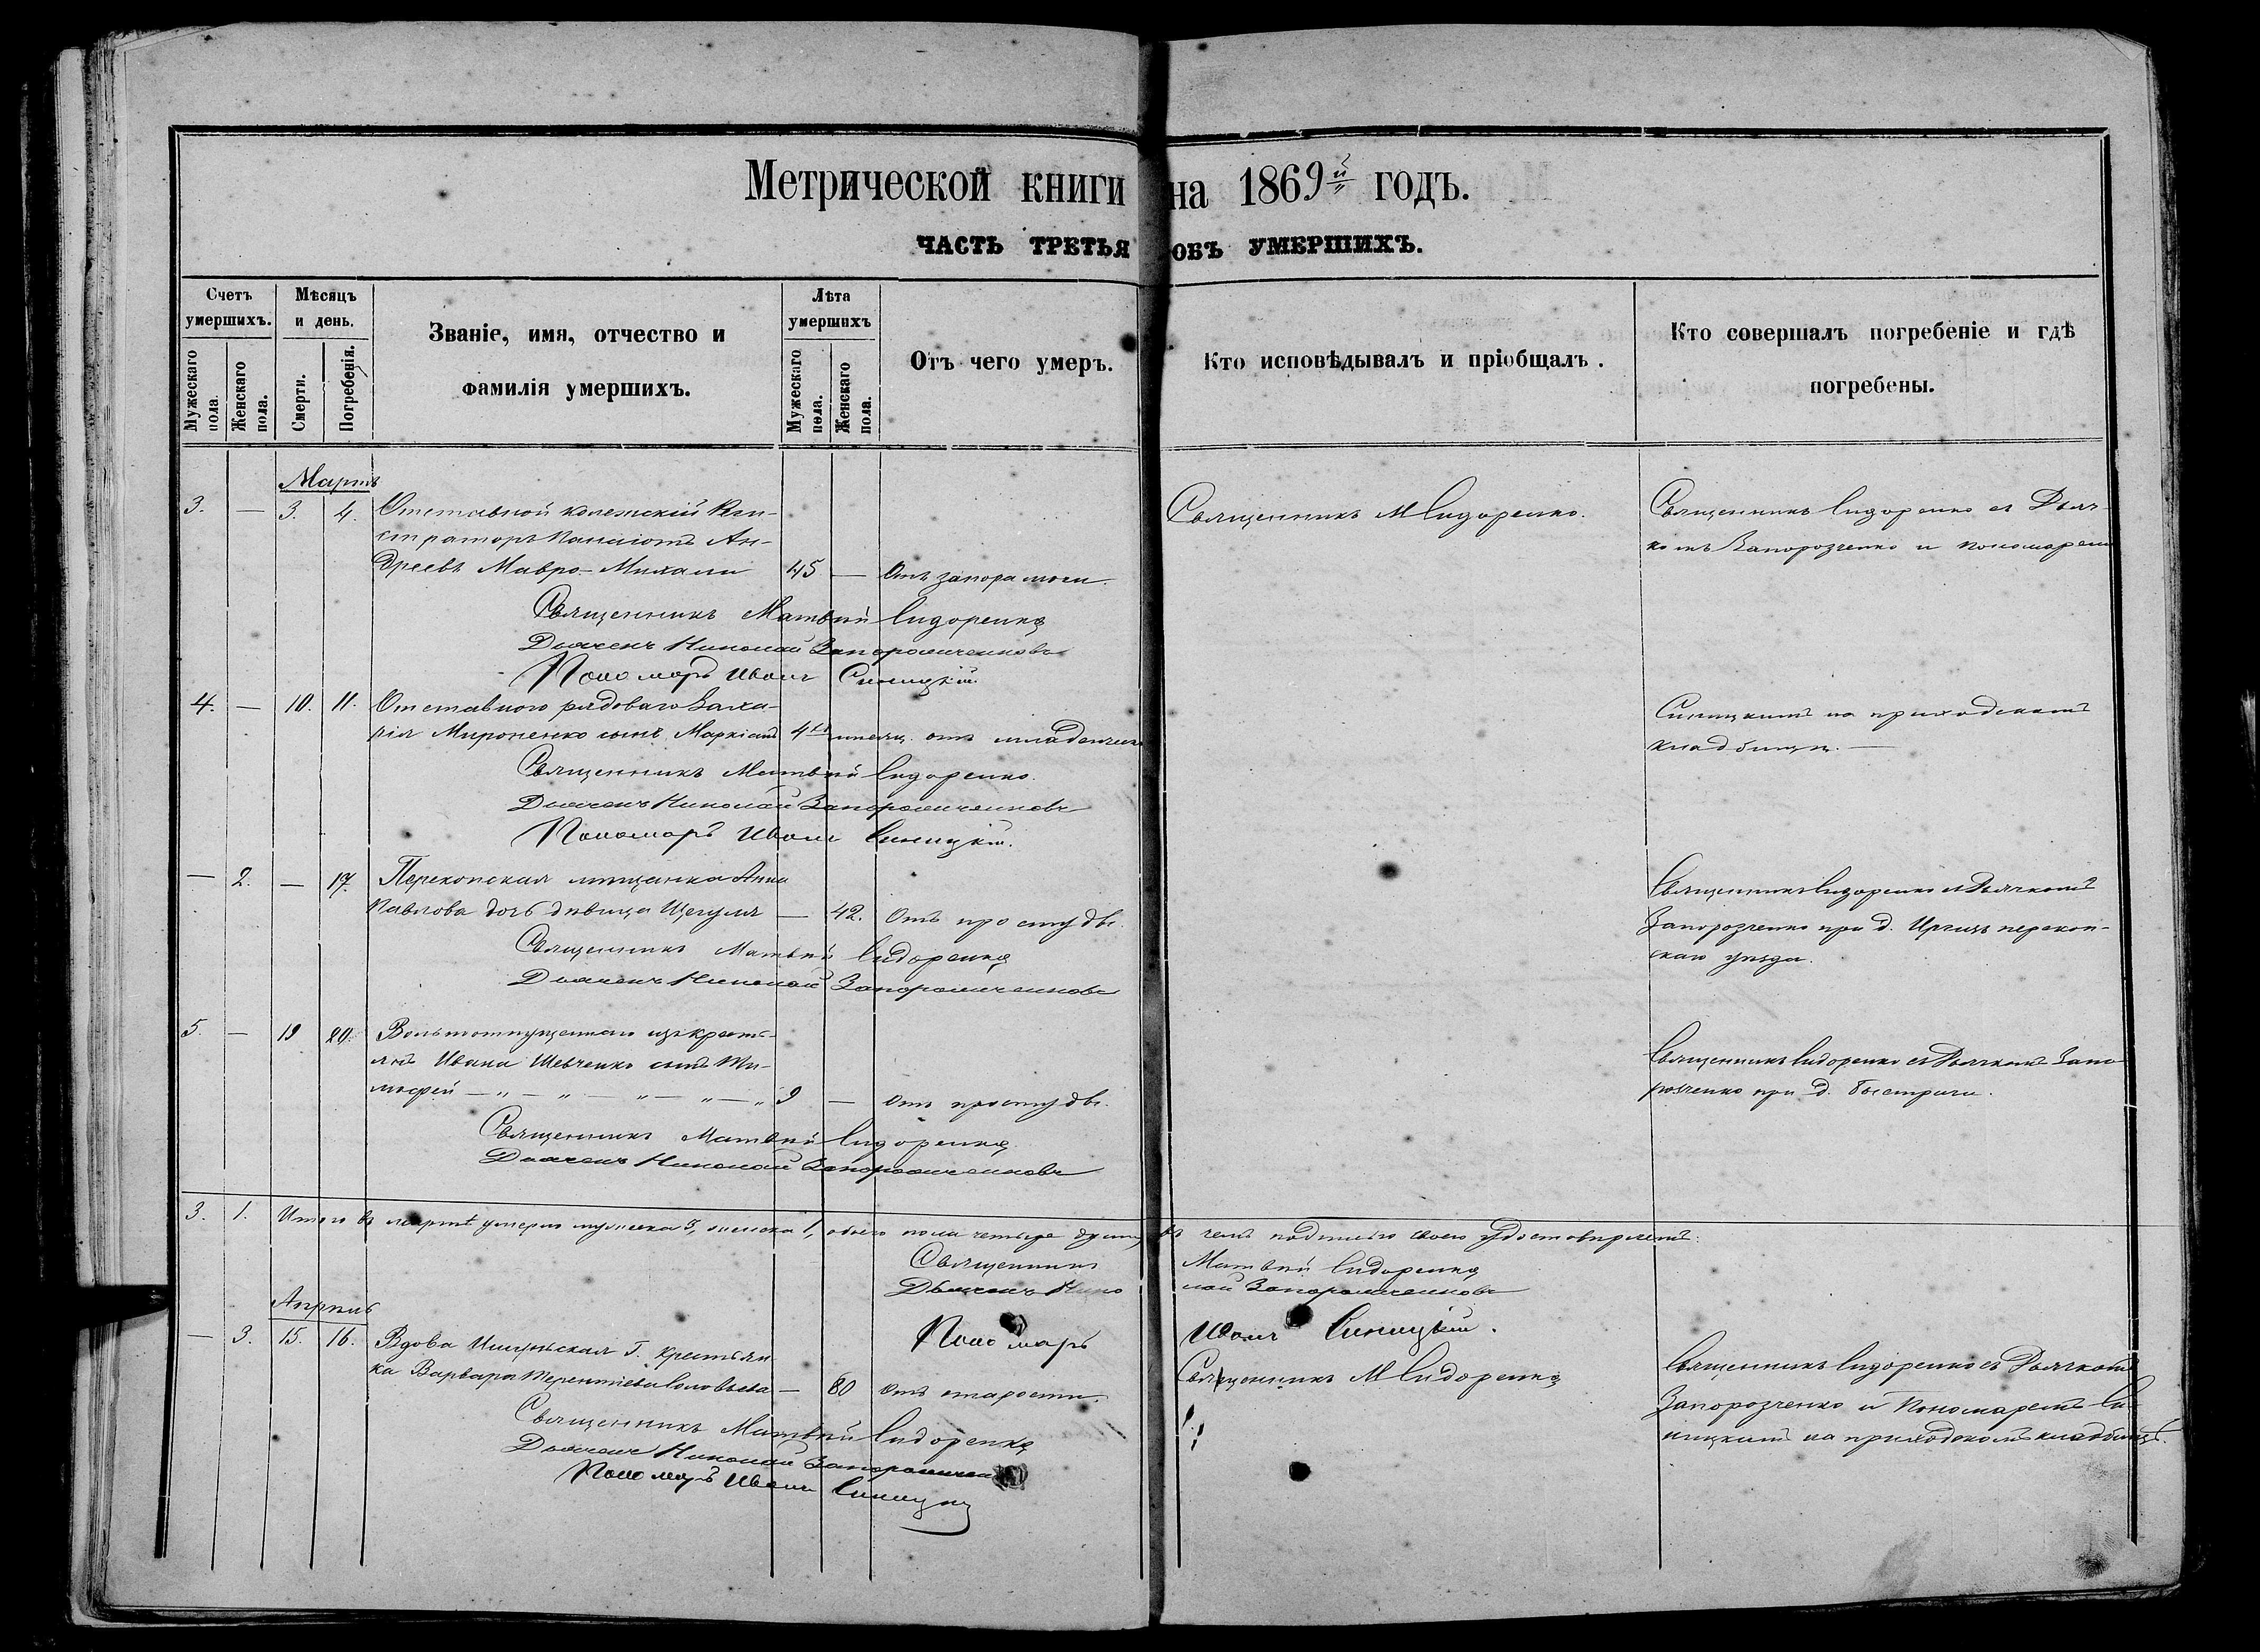 Метрической книги на 1869й годъ.
ЧАСТЬ ТРЕТЬЯ ОБЪ УМЕРШИХЪ.
Счетъ умершихъ.
Мужескаго пола.
Женскаго пола.
Мѣсяцъ и день.
Смерти.
Погребенія.
Званіе, имя, отчество и
фамилія умершихъ.
Лѣта умершихъ
Мужескаго пола.
Женскаго пола.
Отъ чего умеръ.
Кто исповѣдывалъ и пріобщалъ.
Кто совершалъ погребеніе и гдѣ
погребены.
Мартъ
3. — 3. 4. Отставной колежскій Реги-
страторъ Панаіотъ Ан-
дреевъ Мавро-Михали 45 — Отъ запора мочи.
Священникъ М Сидоренко.
Священникъ Сидоренко съ Дьяч-
комъ Запорозченко и пономаремъ
Священникъ Матвѣй Сидоренко
Дьячекъ Николай Запорожченковъ
Пономарь Иванъ Синицкій
4. — 10. 11. Отставного рядоваго Заха-
рія Мироненко сынъ Маркіанъ 4хъ мѣсяц. отъ младенческ
Синицкимъ на приходскомъ
кладбищѣ. —
Священникъ Матвѣй Сидоренко.
Дьячекъ Николай Запорожченковъ
Пономарь Иванъ Синицкій.
— 2. — 17. Перекопская мѣщанка Анна
Павлова дочь дѣвица — 42. Отъ простуды.
Священникъ Сидоренко съ Дьячкомъ
Запорозченко при д. перекоп-
скаго уѣзда.
Священникъ Матвѣй Сидоренко
Дьячекъ Николай Запорожченковъ
5. — 19 20. Вольноотпущеннаго изъ крестъ-
янъ Ивана Шевченко сынъ Ти-
мофей — „ — „ — „ — „ — „ 9 — Отъ простуды.
Священникъ Сидоренко съ Дьячкомъ Запо-
розченко при д.
Священникъ Матвѣй Сидоренко
Дьячекъ Николай Запорожченковъ
3. 1. Итого въ мартѣ умерло мужеска 3, женска 1, обоего пола четыре души, въ чемъ подписью своею удостовѣряемъ:
Священникъ Матвѣй Сидоренко
Дьячекъ Николай Запорожченковъ
Пономарь Иванъ Синицкій.
Апрѣль
— 3. 15. 16. Вдова Г. крестьян
ка Варвара Терентіева Соловьева — 80 отъ старости.
Священникъ М Сидоренко
Священникъ Сидоренко съ Дьячкомъ
Запорозченко и Пономаремъ Си-
ницкимъ на приходскомъ кладбищѣ.
Священникъ Матвѣй Сидоренко
Дьячекъ Николай
Пономарь Иванъ